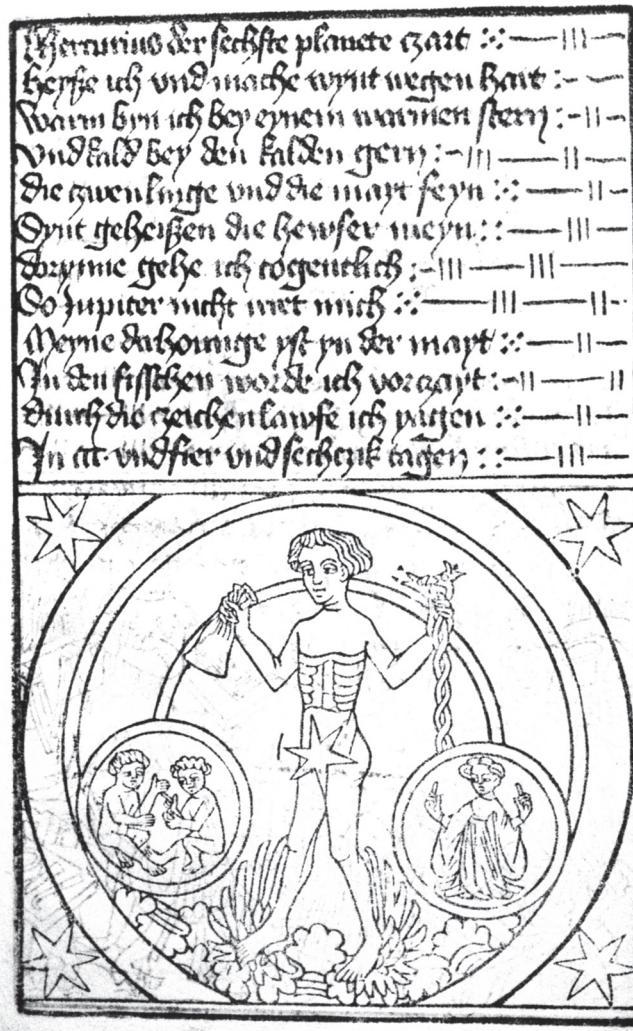 Mercurius der sechste planete czart
heysze ich vnd mache wynt wegen hart
Warm byn ich bey eynem warmen stern
Vnd kald bey den kalden gern
die czwenlinge vnd die mayt feyn
Synt geheiszen die hewser meyn
dorynne gehe ich togentlich
So Jupiter nicht met mich
Meyne dirhounge yst yn der mayt
In den fisschen worde ich vorczayt
durch die czeichen lawfe ich
In vnd fier vnd sechczik tagen